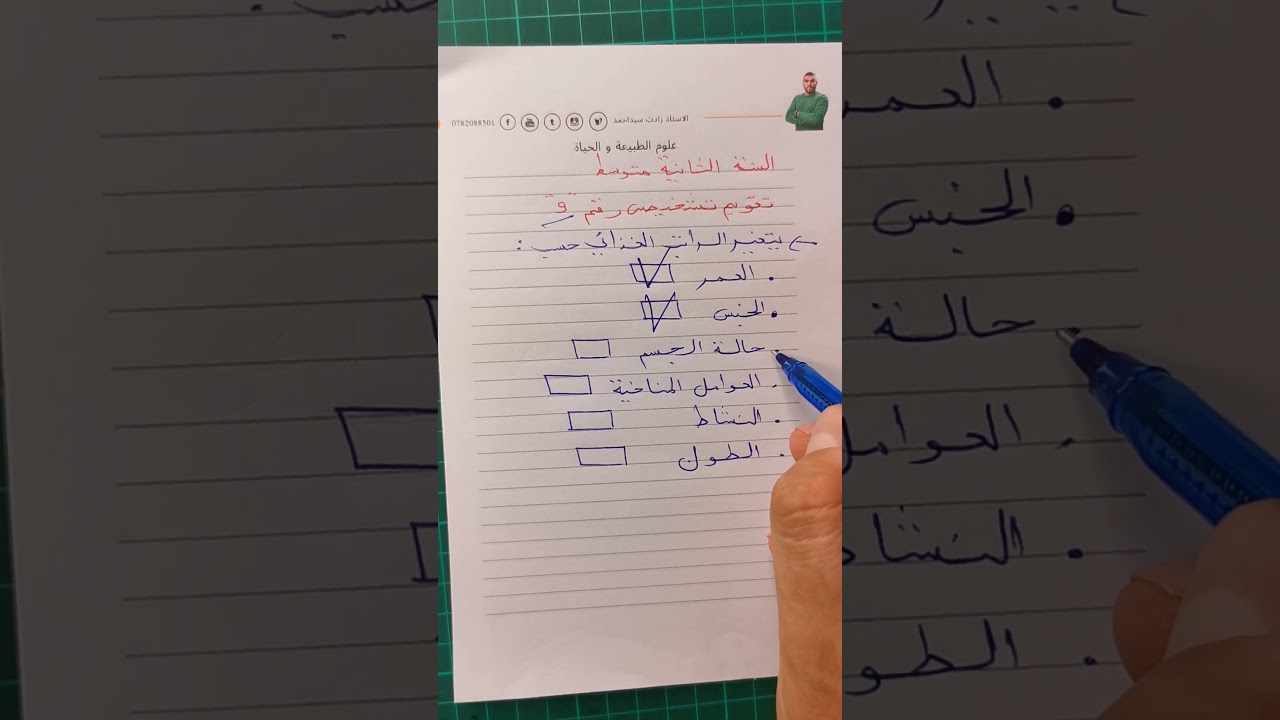 الاستاذ زادت سيداحمد 0782088501
علوم الطبيعة و الحياة
السنة الثانية متوسط
تقويم تشخيصي رقم "9"
يتغير الراتب الغذائي حسب :
. العمر
. الجنس
. حالة الجسم
. العوامل المناخية
. النشاط
. الطول